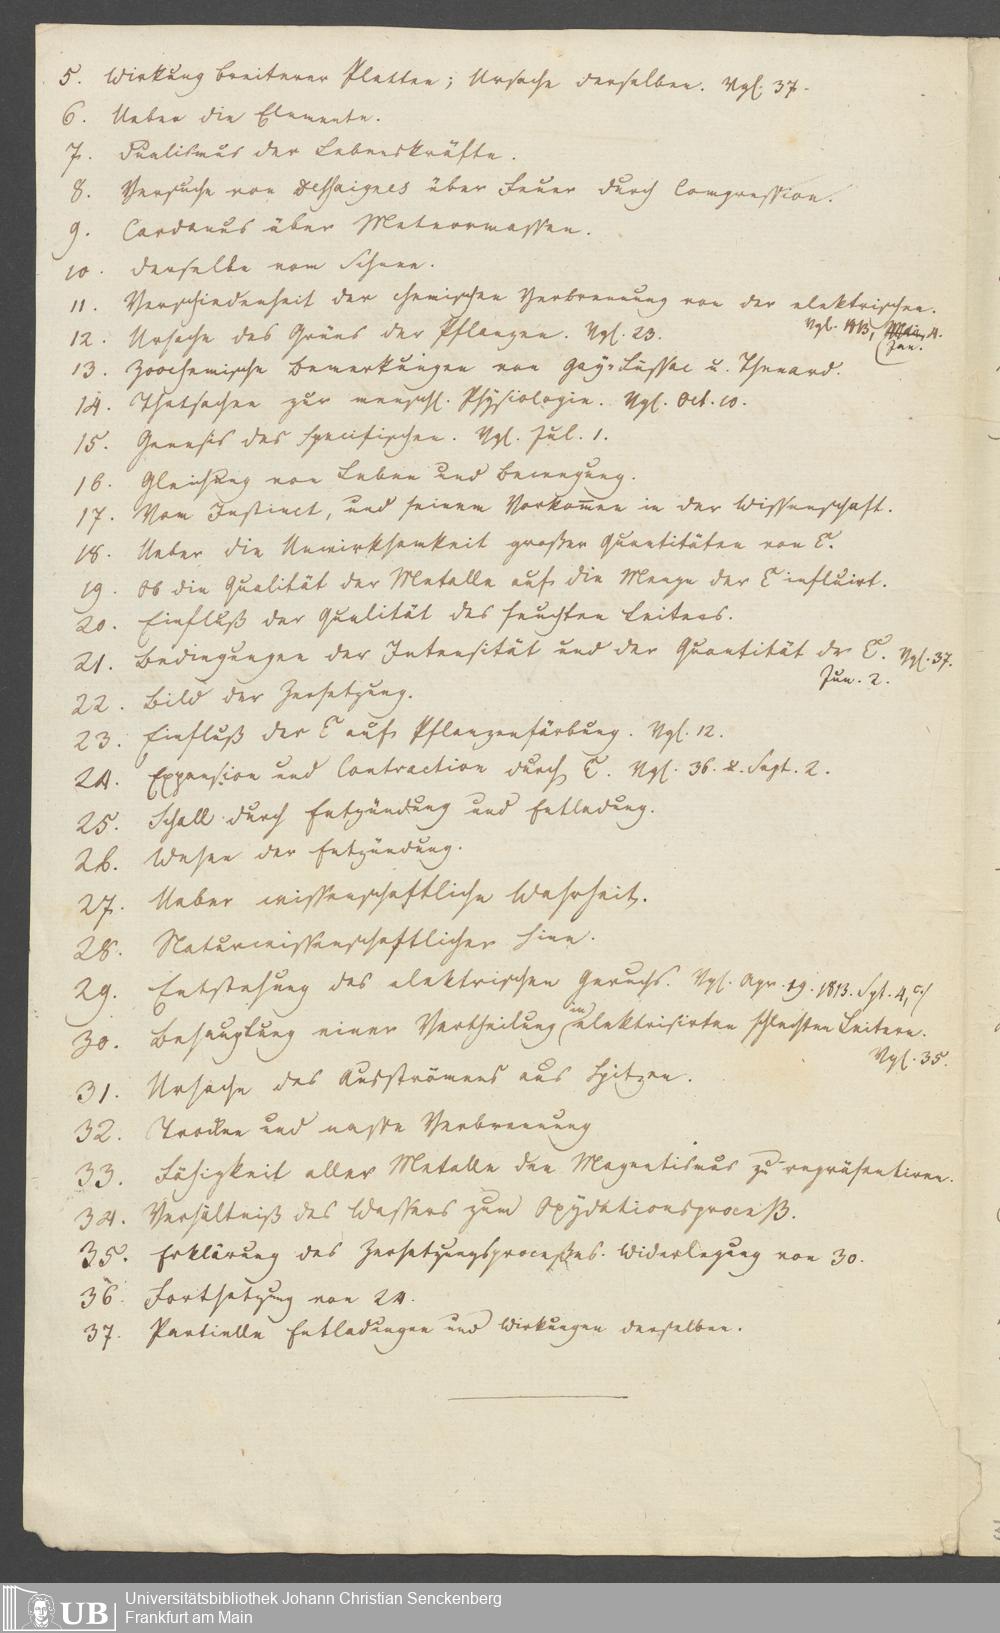 5. Wirkung breiterer Platten; Ursache derselben. Vgl. 37.
6. Ueber die Elemente.
7. Dualismus der Lebenskräfte.
8. Versuche von Dessaignes über Feuer durch Compression.
9. Cardanus über Meteormassen.
10. Derselbe vom Schnee.
11. Verschiedenheit der chemischen Verbrennung von der elektrischen.
Vgl. 1813, Jan. 4.
12. Ursache des Grüns der Pflanzen. Vgl. 23.
13. Zoochemische Bemerkungen von Gay-Lussac u. Thenard.
14. Thatsachen zur menschl. Physiologie. Vgl. Oct. 10.
15. Genesis des Specifischen. Vgl. Jul. 1.
16. Gleichung von Leben und Bewegung.
17. Vom Instinct, und seinem Vorkom̄en in der Wissenschaft.
18. Ueber die Unwirksamkeit großer Quantitäten von E.
19. Ob die Qualität der Metalle auf die Menge der E influirt.
20. Einfluß der Qualität des feuchten Leiters.
21. Bedingungen der Intensität und der Quantität der E. Vgl. 37.
Jun. 2.
22. Bild der Zersetzung.
23. Einfluß der E auf Pflanzenfärbung. Vgl. 12.
24. Expansion und Contraction durch E. Vgl. 36. u. Sept. 2.
25. Schall durch Entzündung und Entladung.
26. Wesen der Entzündung.
27. Ueber wissenschaftliche Wahrheit.
28. Naturwissenschaftlicher Sinn.
29. Entstehung des elektrischen Geruchs. Vgl. Apr. 19. 1813. Spt. 4, c)
30. Behauptung einer Vertheilung in elektrisirten schlechten Leitern.
Vgl. 35.
31. Ursache des Ausströmens aus Spitzen.
32. Trockne und nasse Verbrennung
33. Fähigkeit aller Metalle den Magnetismus zu repräsentiren.
34. Verhältniß des Wassers zum Oxydationsproceß.
35. Erklärung des Zersetzungsprocesses. Widerlegung von 30.
36. Fortsetzung von 24.
37. Partielle Entladungen und Wirkungen derselben.
UB
Universitätsbibliothek Johann Christian Senckenberg
Frankfurt am Main